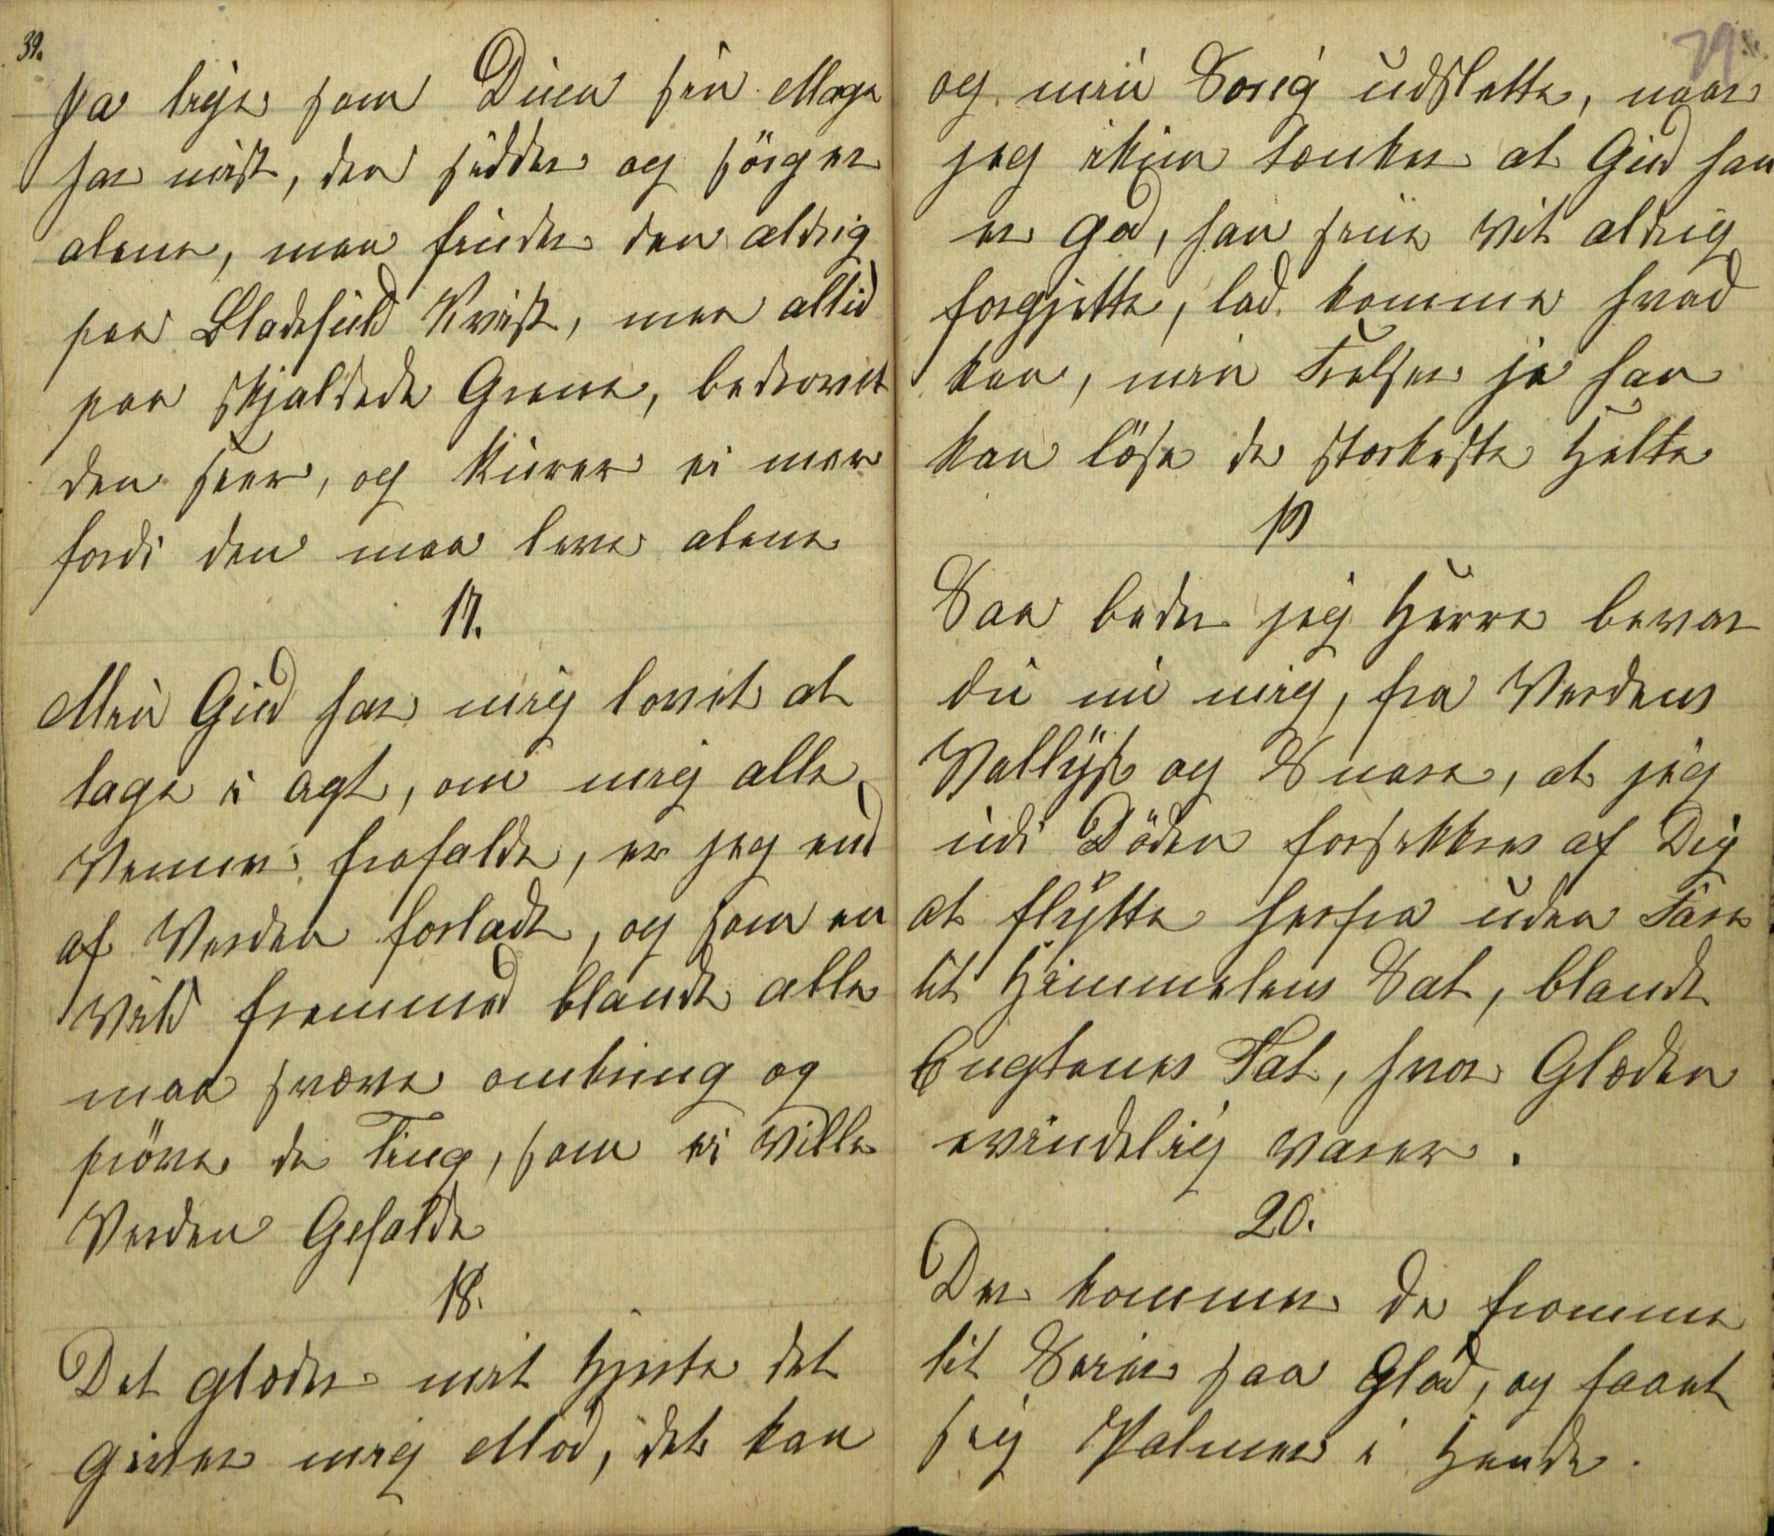 39.
Ja lige som Duen sin Mage
har mist, den sidder og sörger
alene, man finder den aldrig
paa Bladefuld Kvist, men altid
paa skjaldede Grene, bedrovet
den seer, og kurer ei mer
fordi den maa leve alene
17.
Min Gud har mig lovet at
tage i agt, om mig alle
Venner frafalde, er jeg end
af Verden forladt, og som en
vild fremmed blandt alle
maa sværve omkring og
pröve de Ting, som ei ville
Verden Gefalde
18.
Det glæder mit Hjerte det
giver mig Mod, det kan
79
og min Sorrig udslette, naar
jeg ikun tænker at Gud han
er god, han sine vil aldrig
forgjette, lad komme hvad
kan, min Frelser jo han
kan löse de storkeste Helte
19
Saa beder jeg Herre bevar
du nu mig, fra Verdens
Vellyst og Snare, at jeg
udi Döden forsikkres af Dig
at flytte herfra uden Fare
til Himmelens Sal, blandt
Englenes Tal, hvor Glæden
evindelig varer.
20.
Der kommer de fromme
lit Serier saa Glad, og faaet
sig Palmer i Hænde.